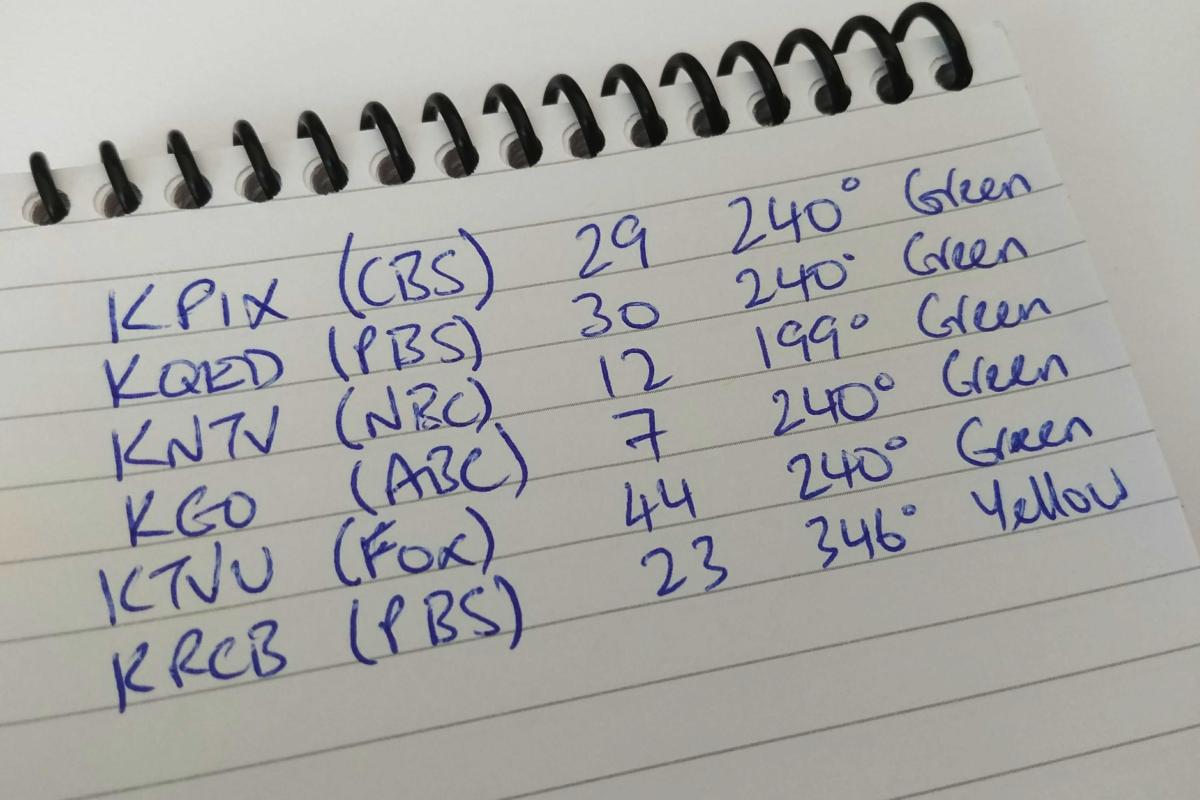 KPIX (CBS) 29 240° Green
KQED (PBS) 30 240° Green
KNTV (NBC) 12 199° Green
KGO (ABC) 7 240° Green
KTVU (Fox) 44 240° Green
KRCB (PBS) 23 346° Yellow